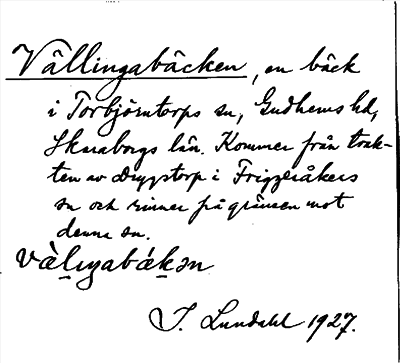 Vällingabäcken, en bäck
i Torbjörntorps sn, Gudhems hd,
Skaraborgs län. Kommer från trak-
ten av Drygstorp i Friggeråkers
sn och rinner på gränsen mot
denna sn.
vàlıŋabák̠ən
I. Lundahl 1927.